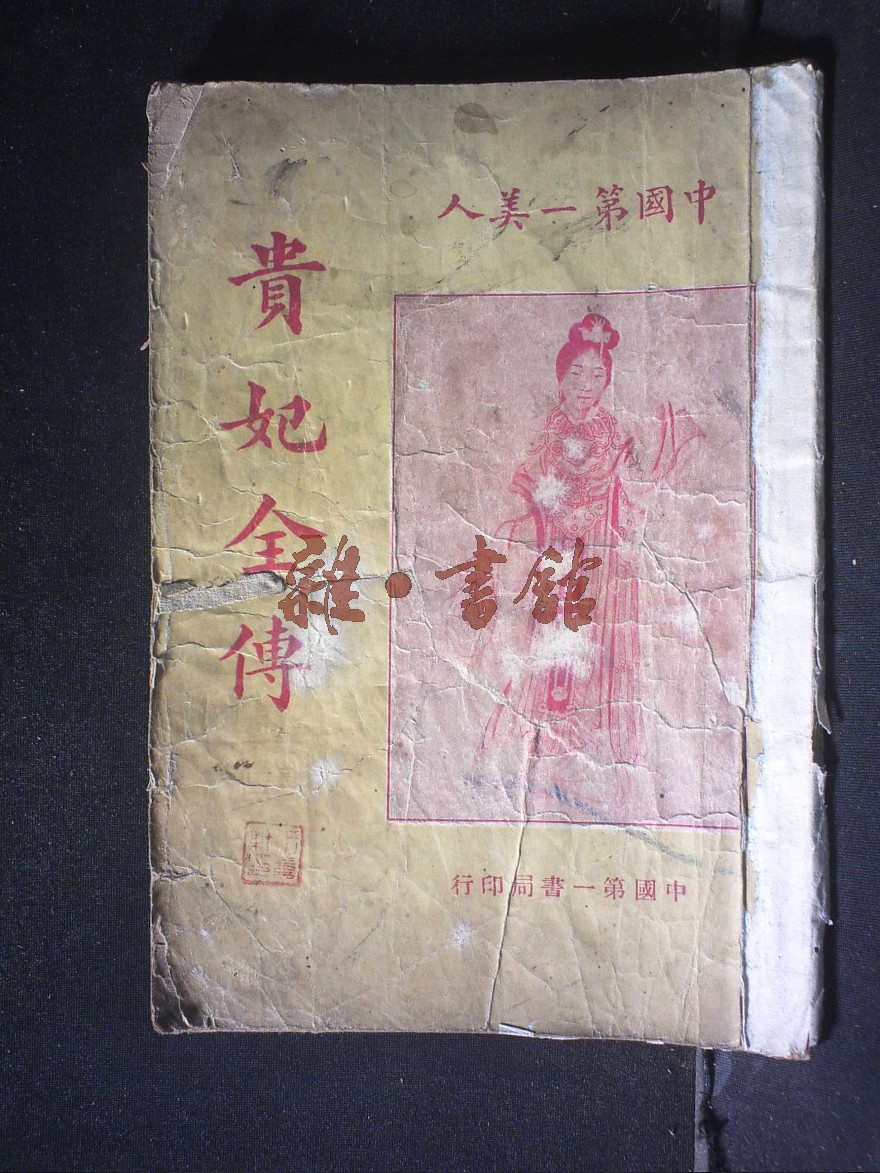 中國第一美人
貴妃全傳
中國第一書局印行
雜·書館